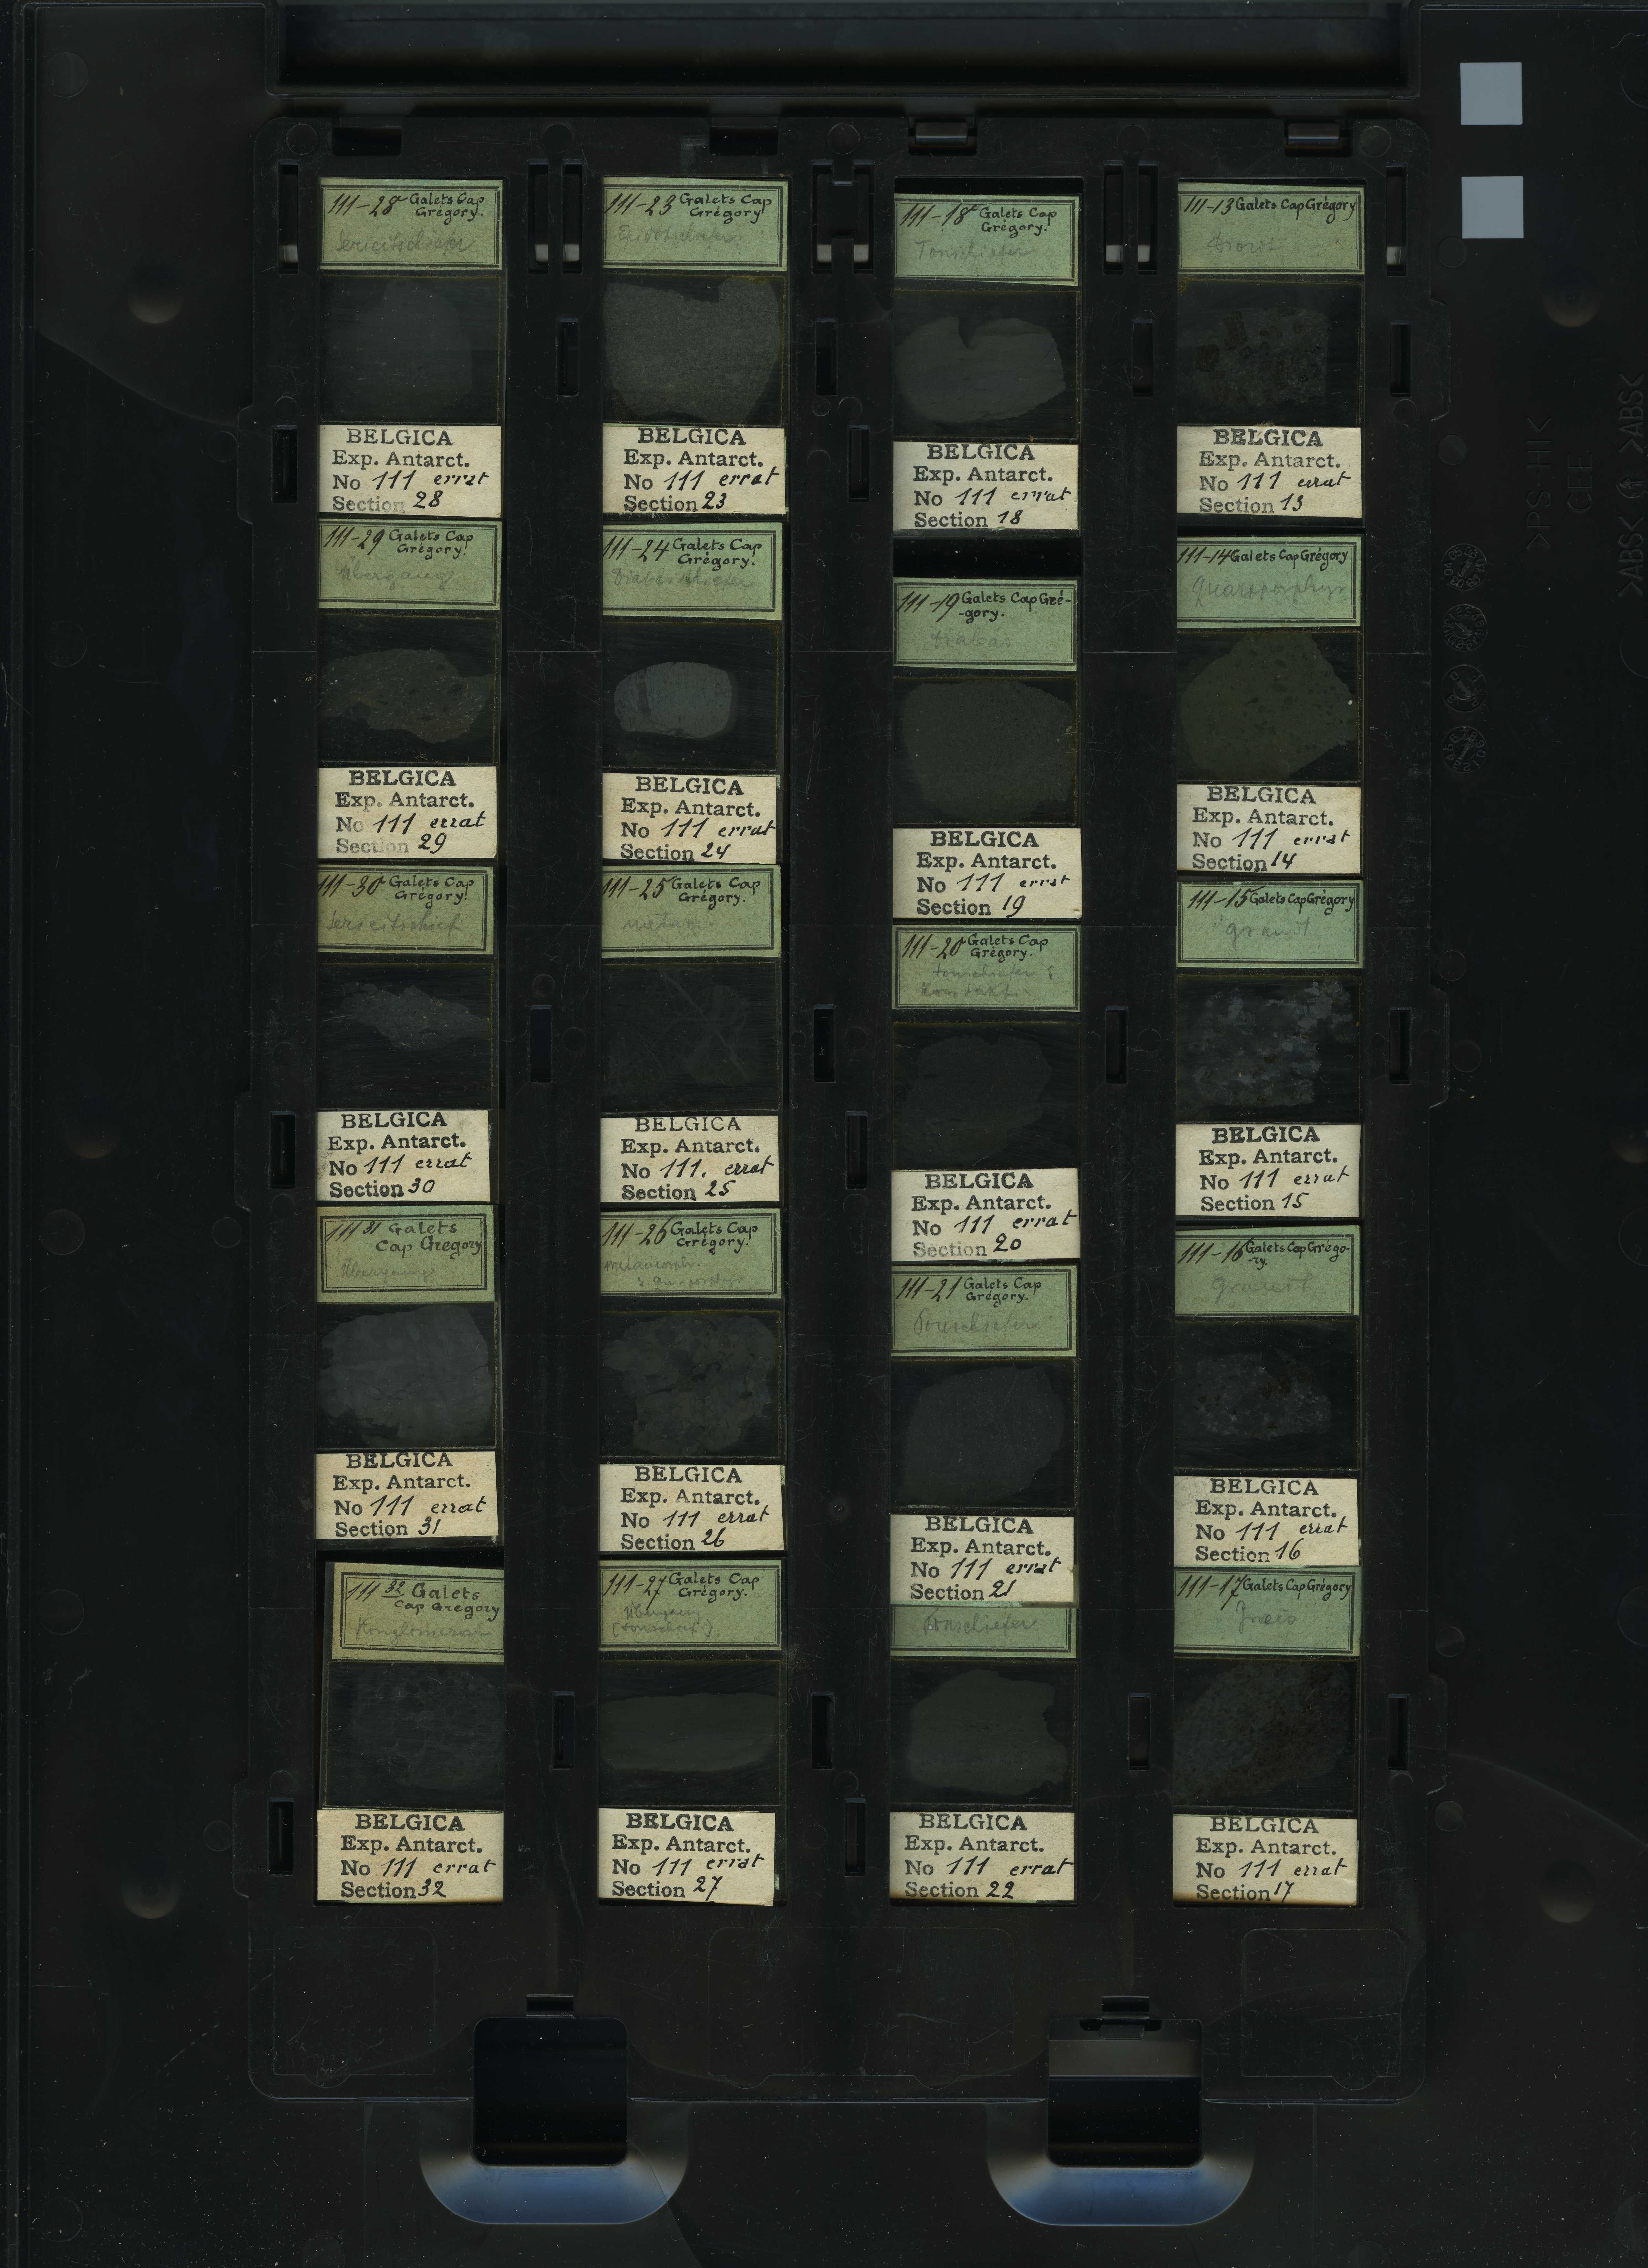 111-28 Galets Cap
Grégory.
Sericitschiefer
BELGICA
Exp. Antarct.
No 111 errat
Section 28
111-29 Galets Cap
Grégory.
Übergang
BELGICA
Exp. Antarct.
No 111 errat
Section 29
111-30 Galets Cap
Grégory.
Sericitschief
BELGICA
Exp. Antarct.
No 111 errat
Section 30
111 31 Galets
Cap Gregory
Übergang
BELGICA
Exp. Antarct.
No 111 errat
Section 31
111 32 Galets
Cap Gregory
Konglomerat
BELGICA
Exp. Antarct.
No 111 errat
Section 32
111-23 Galets Cap
Grégory
BELGICA
Exp. Antarct.
No 111 errat
Section 23
111-24 Galets Cap
Grégory.
Diabasschiefer
BELGICA
Exp. Antarct.
No 111 errat
Section 24
111-25 Galets Cap
Grégory.
metam.
BELGICA
Exp. Antarct.
No 111. errat
Section 25
111-26 Galets Cap
Grégory.
metamorph.
BELGICA
Exp. Antarct.
No 111 errat
Section 26
111-27 Galets Cap
Grégory.
Übergang
(tonschief.)
BELGICA
Exp. Antarct.
No 111 errat
Section 27
111-18 Galets Cap
Grégory.
Tonschiefer
BELGICA
Exp. Antarct.
No 111 errat
Section 18
111-19 Galets Cap Gré-
-gory.
diabas
BELGICA
Exp. Antarct.
No 111 errat
Section 19
111-20 Galets Cap
Grégory.
tonschiefer
Kontakt
BELGICA
Exp. Antarct.
No 111 errat
Section 20
111-21 Galets Cap
Grégory.
Tonschiefer
BELGICA
Exp. Antarct.
No 111 errat
Section 21
Tonschiefer
BELGICA
Exp. Antarct.
No 111 errat
Section 22
111-13 Galets Cap Grégory
diorit
BELGICA
Exp. Antarct.
No 111 errat
Section 13
111-14 Galets Cap Grégory
Quarzporphyr
BELGICA
Exp. Antarct.
No 111 errat
Section 14
111-15 Galets Cap Grégory
granit
BELGICA
Exp. Antarct.
No 111 errat
Section 15
111-16 Galets Cap Grégo-
-ry.
Granit
BELGICA
Exp. Antarct.
No 111 errat
Section 16
111-17 Galets Cap Grégory
Gneis
BELGICA
Exp. Antarct.
No 111 errat
Section 17
>PS-HI<
>ABS< >ABS<